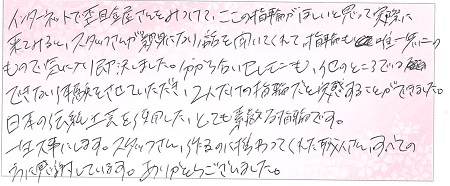 インターネットで杢目金屋さんをみつけて、ここの指輪がほしいと思って実際に
来てみると、スタッフさんが親身になり話を聞いてくれて、指輪も唯一無二の
もので気に入り即決しました。分からないでしたことも、他のところでは
できない体験をさせていただき、2人だけの指輪だと実感することができました。
日本の伝統工芸を使用したとても素敵な指輪です。
一生大事にします。スタッフさん、作るのに携わってくれた職人さん、すべての
方に感謝しています。ありがとうございました。